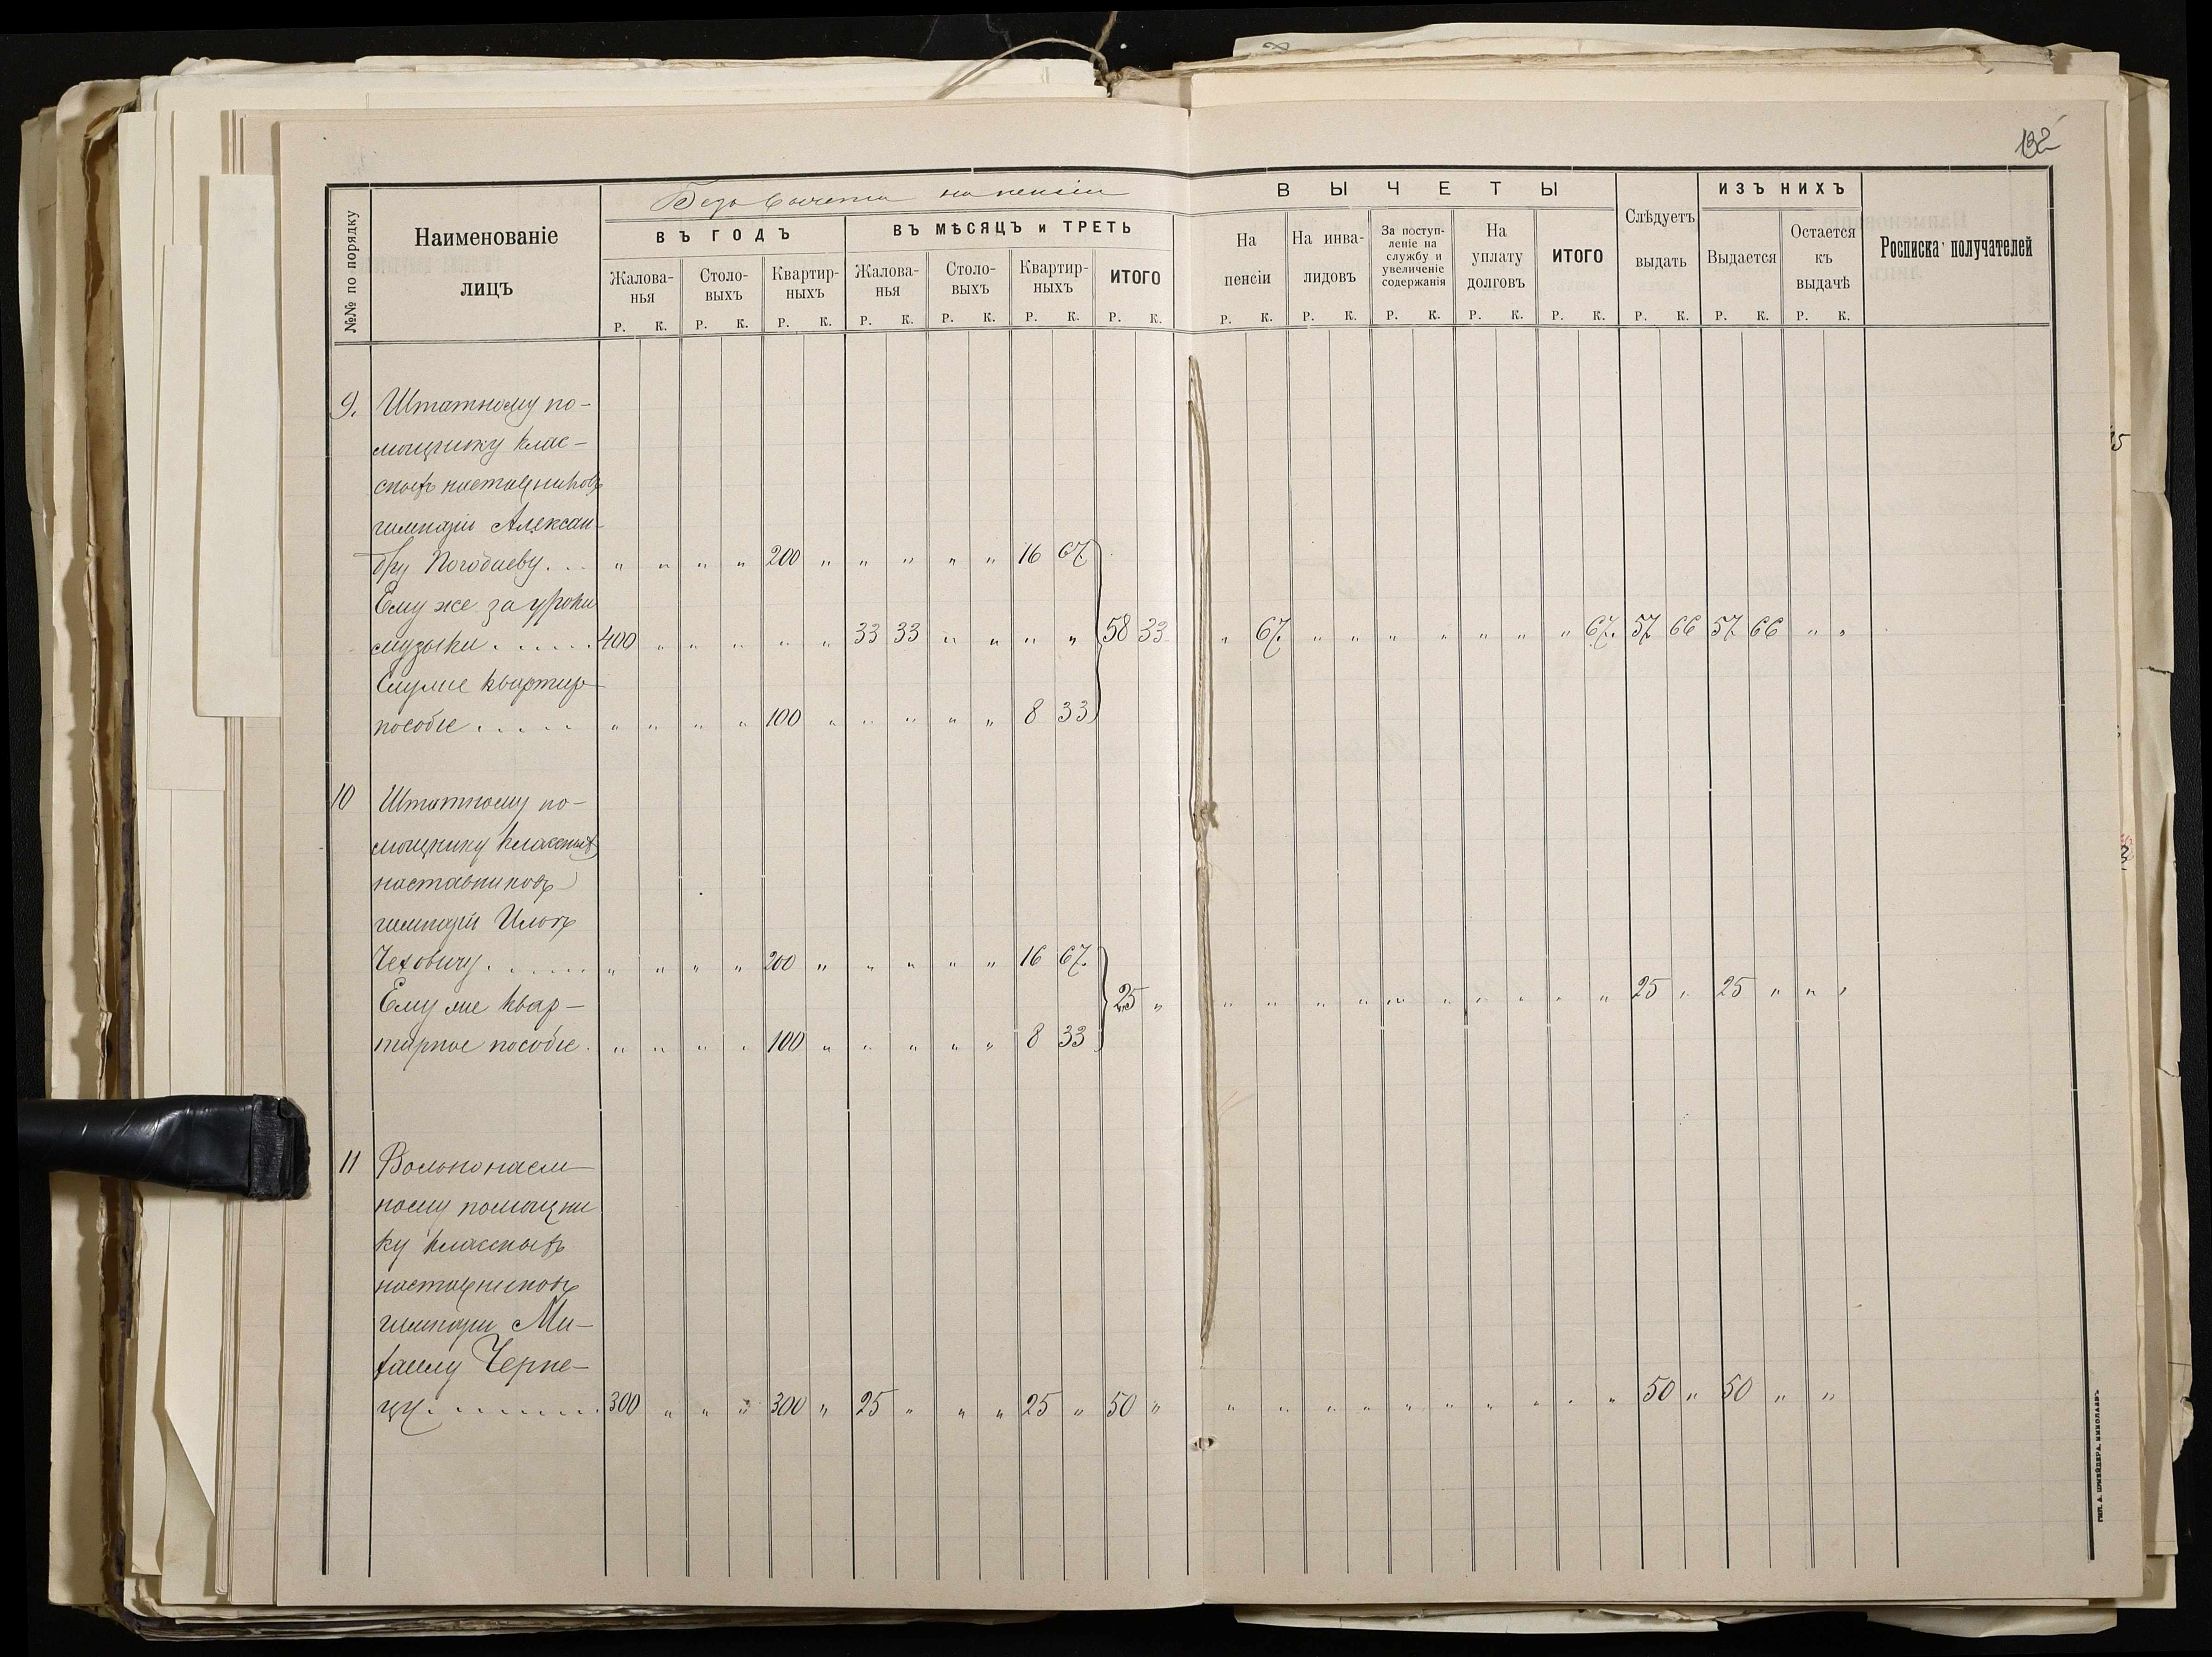 132
Безъ вычета на пенсіи
№№ по порядку
Наименованіе
лицъ
ВЪ ГОДЪ
ВЪ МѢСЯЦЪ и ТРЕТЬ
Жалова-
нья
Столо-
выхъ
Квартир-
ныхъ
Жалова-
нья
Столо-
выхъ
Квартир-
ныхъ
ИТОГО
Р. К. Р. К. Р. К. Р. К. Р. К. Р. К. Р. К.
ВЫЧЕТЫ
На
пенсіи
На инва-
лидовъ
За поступ-
леніе на
службу и
увеличеніе
содержанія
На
уплату
долговъ
ИТОГО
Слѣдуетъ
выдать
ИЗЪ НИХЪ
Выдается
Остается
къ
выдачѣ
Росписка получателей
Р. К. Р. К. Р. К. Р. К. Р. К. Р. К. Р. К. Р. К.
9. Штатному по-
мощнику клас-
сныхъ наставниковъ
гимназіи Алексан-
дру Погодаеву . . . " " " " 200 " " " " " 16 67
Ему же за уроки
музыки . . . . . 400 " " " " " 33 33 " " " " 58 33 " 67 " " " " " " " 67. 57 66 57 66 " "
Ему же квартир
пособіе . . . . . " " " " 100 " " " " " 8 33
10 Штатному по-
мощнику классныхъ
наставниковъ
гимназіи
Чеховичу . . . . . " " " " 200 " " " " " 16 67.
Ему же квар-
25 " " " " " " " " " " " 25 " 25 " " "
тирное пособіе . " " " " 100 " " " " " 8 33
11 Вольнонаем-
ному помощни
ку классныхъ
наставниковъ
гимназіи Ми-
хаилу Черне-
цу . . . . . . . . 300 " " " 300 " 25 " " " 25 " 50 " " " " " " " " " " " 50 " 50 " "
ТИП. А. ШНЕЙДЕРА, НИКОЛАЕВЪ